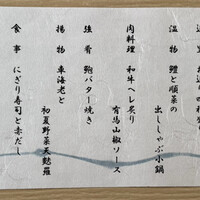 温物 鱧と順菜の
出ししゃぶ小鍋
肉料理 和牛ヘレ炙り
有馬山椒ソース
強肴 鮑バター焼き
揚物 車海老と
初夏野菜天麩羅
食事 にぎり寿司と赤だし